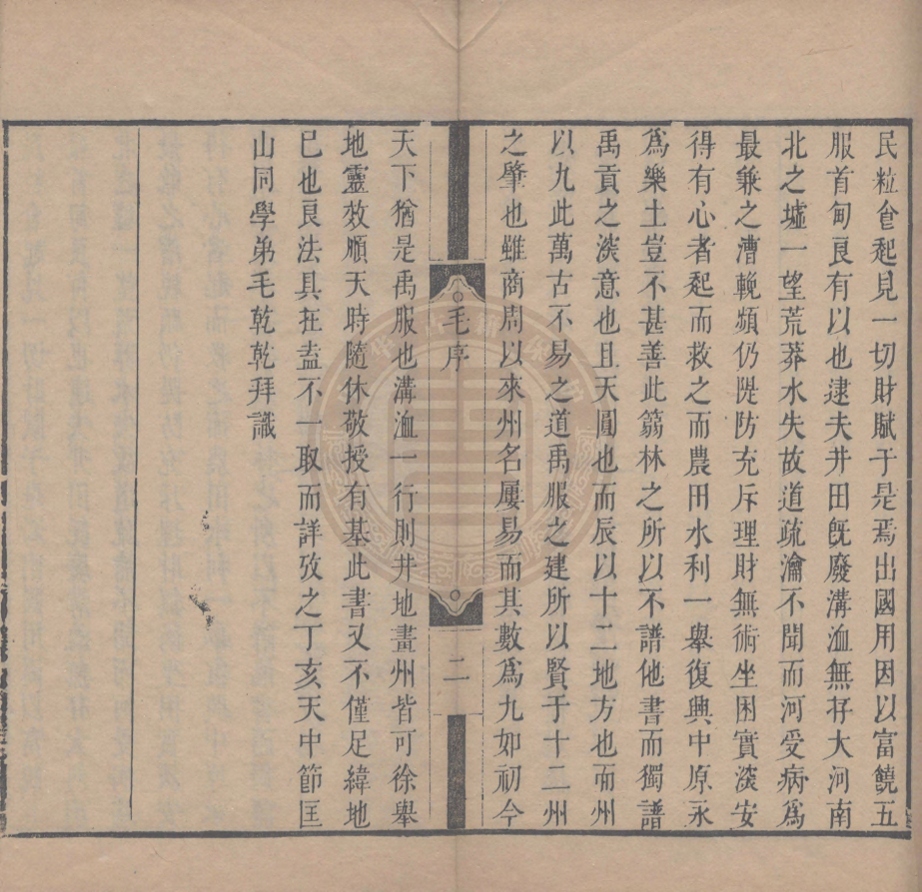 民粒食起見一切財賦于是焉出國用因以富饒五
服首甸良有以也逮夫井田旣廢溝洫無存大河南
北之墟一望荒莽水失故道疏瀹不聞而河受病爲
最兼之漕輓頻仍隄防充斥理財無術坐困實滋安
得有心者起而救之而農田水利一舉復興中原永
爲樂土豈不甚善此蒻林之所以不譜他書而獨譜
禹貢之深意也且天圓也而辰以十二地方也而州
以九此萬古不易之道禹服之建所以賢于十二州
之肇也雖商周以來州名屢易而其數爲九如初今
毛序
二
天下猶是禹服也溝洫一行則井地畫州皆可徐舉
地靈效順天時隨休敬授有基此書又不僅足緯地
已也良法具在盍不一取而詳攷之丁亥天中節匡
山同學弟毛乾乾拜識